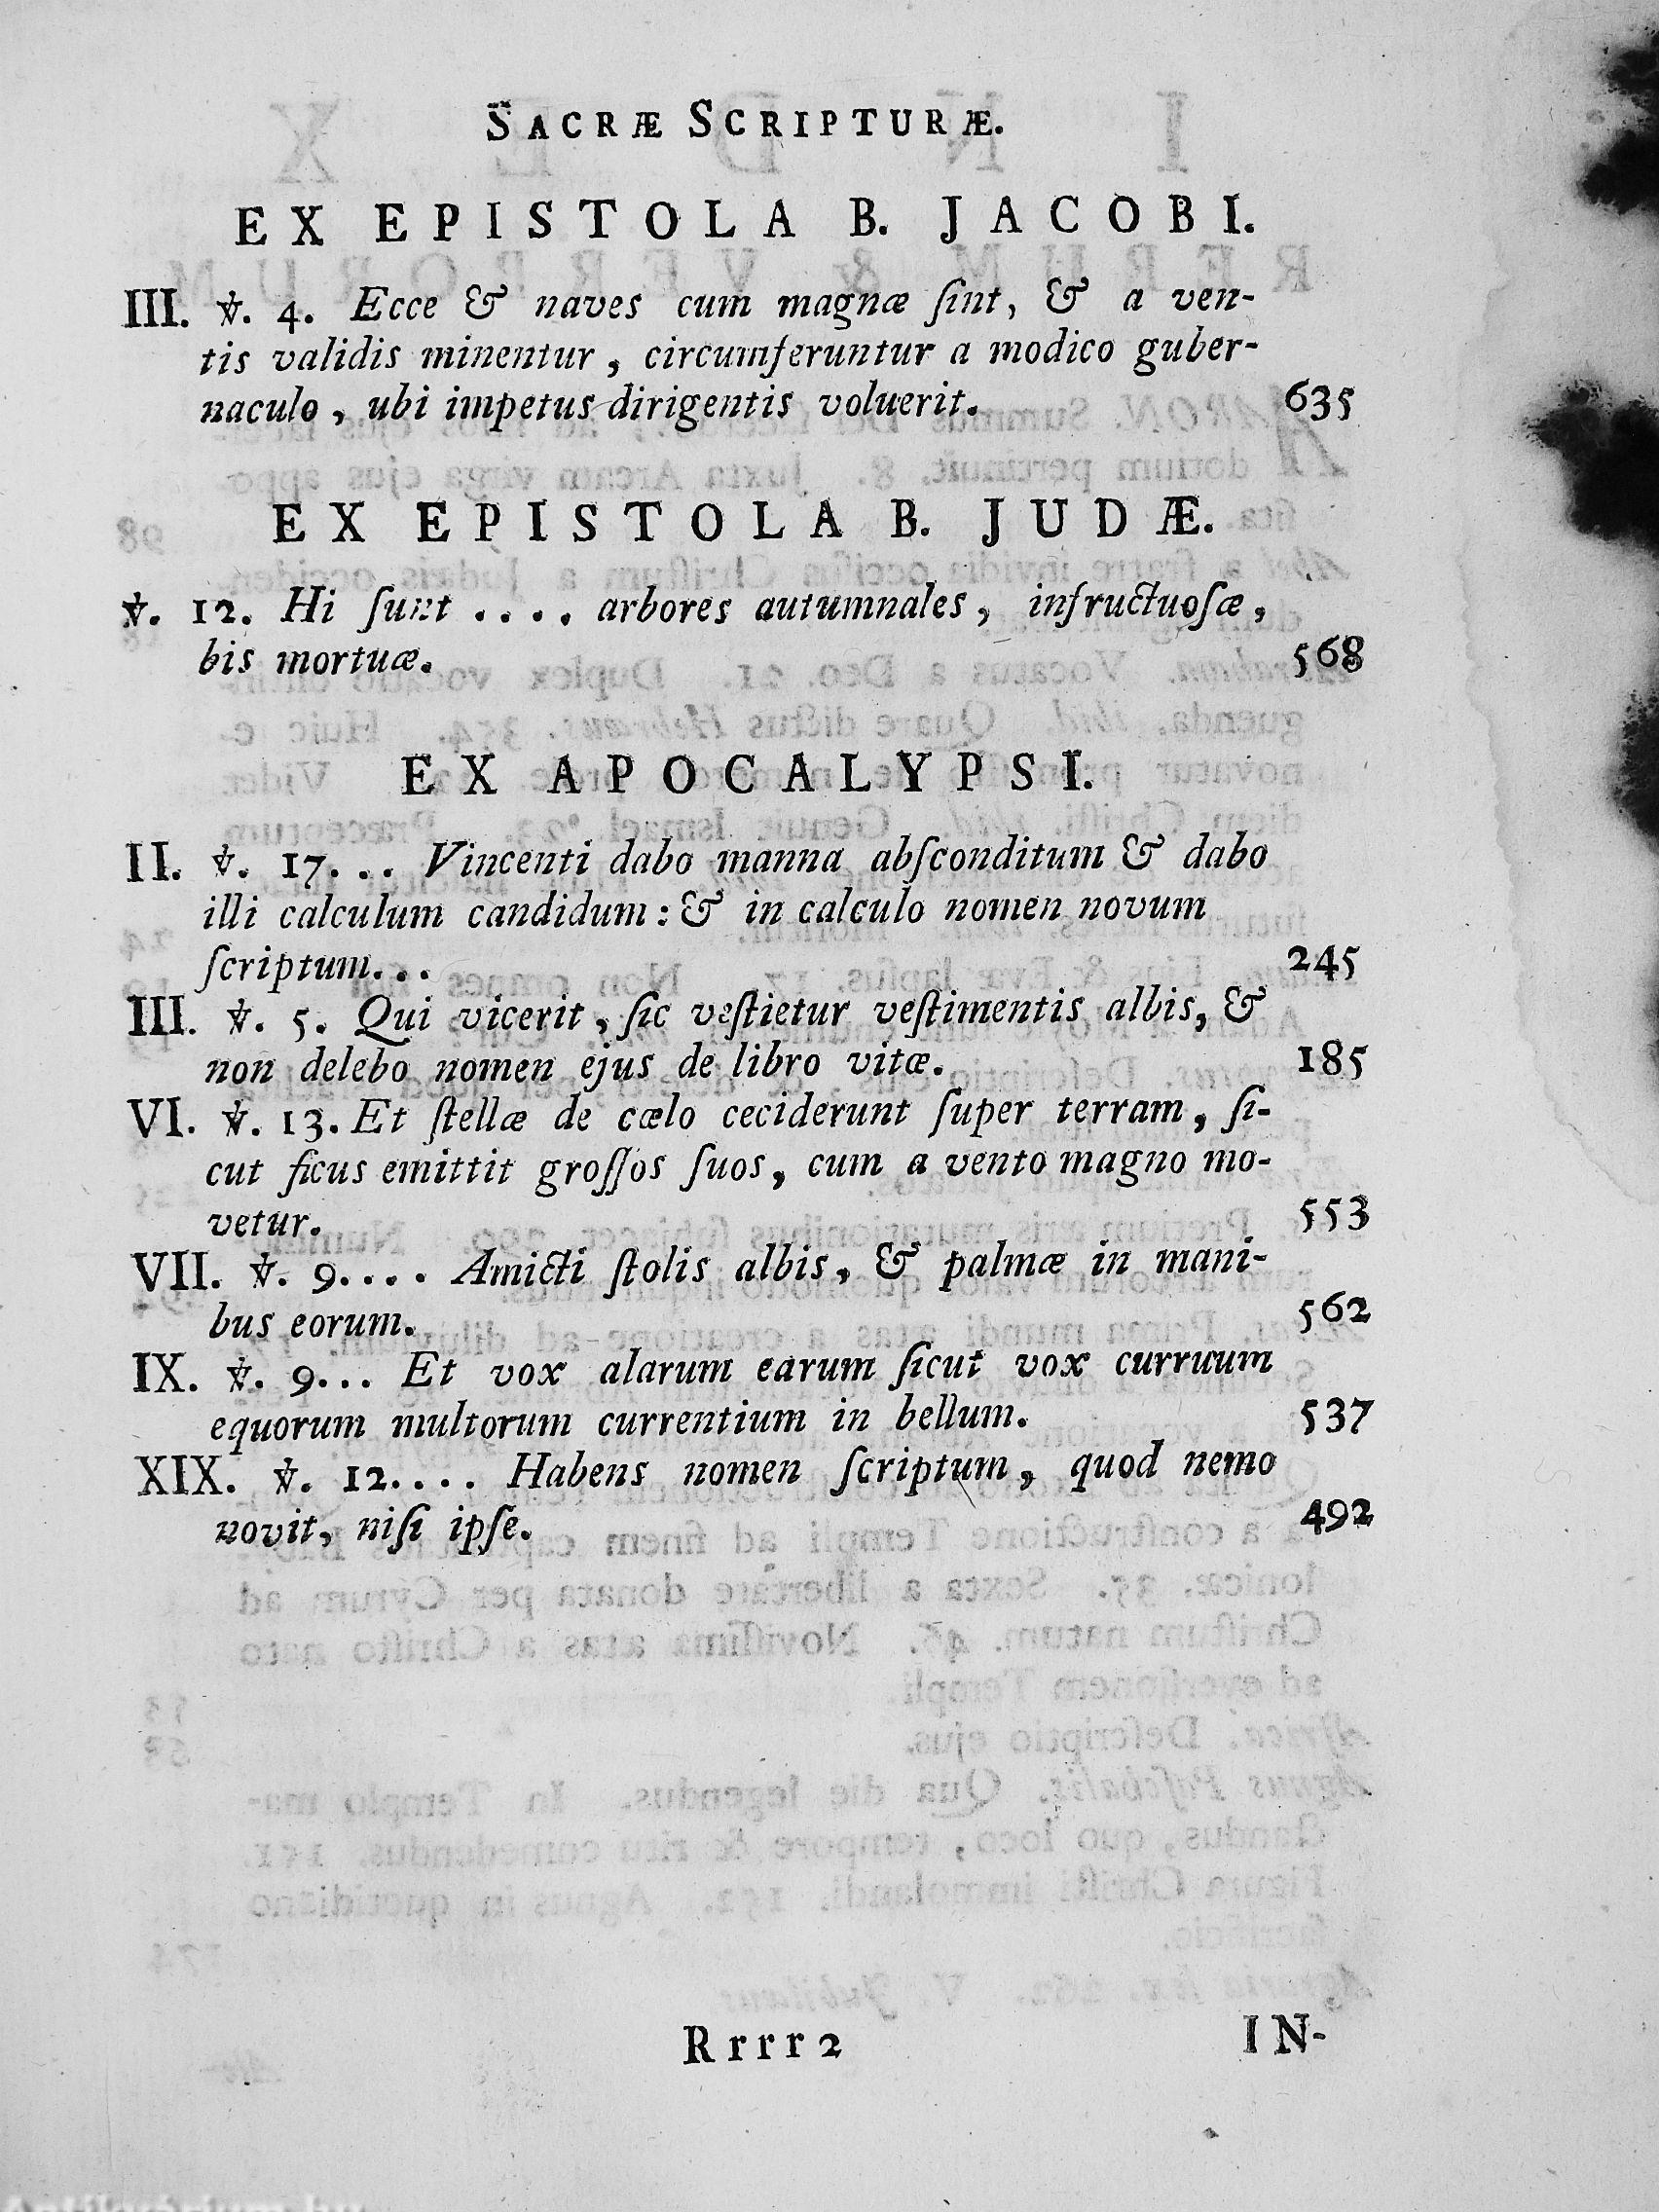 SACRÆ SCRIPTURÆ.
EX EPISTOLA B. JACOBI.
III. ℣. 4. Ecce & naves cum magnæ ſint, & a ven-
tis validis minentur, circumferuntur a modico guber-
naculo, ubi impetus dirigentis voluerit. 635
EX EPISTOLA B. JUDÆ.
℣. 12. Hi ſunt .... arbores autumnales, infructuoſæ,
bis mortuæ. 568
EX APOCALYPSI.
II. ℣. 17... Vincenti dabo manna abſconditum & dabo
illi calculum candidum: & in calculo nomen novum
ſcriptum... 245
III. ℣. 5. Qui vicerit, ſic veſtietur veſtimentis albis, &
non delebo nomen ejus de libro vitæ. 185
VI. ℣. 13. Et ſtellæ de cœlo ceciderunt ſuper terram, ſi-
cut ficus emittit groſſos ſuos, cum a vento magno mo-
vetur. 553
VII. ℣. 9.... Amicti ſtolis albis, & palmæ in mani-
bus eorum. 562
IX. ℣. 9... Et vox alarum earum ſicut vox curruum
equorum multorum currentium in bellum. 537
XIX. ℣. 12.... Habens nomen ſcriptum, quod nemo
novit, niſi ipſe. 492
Rrrr 2 IN-